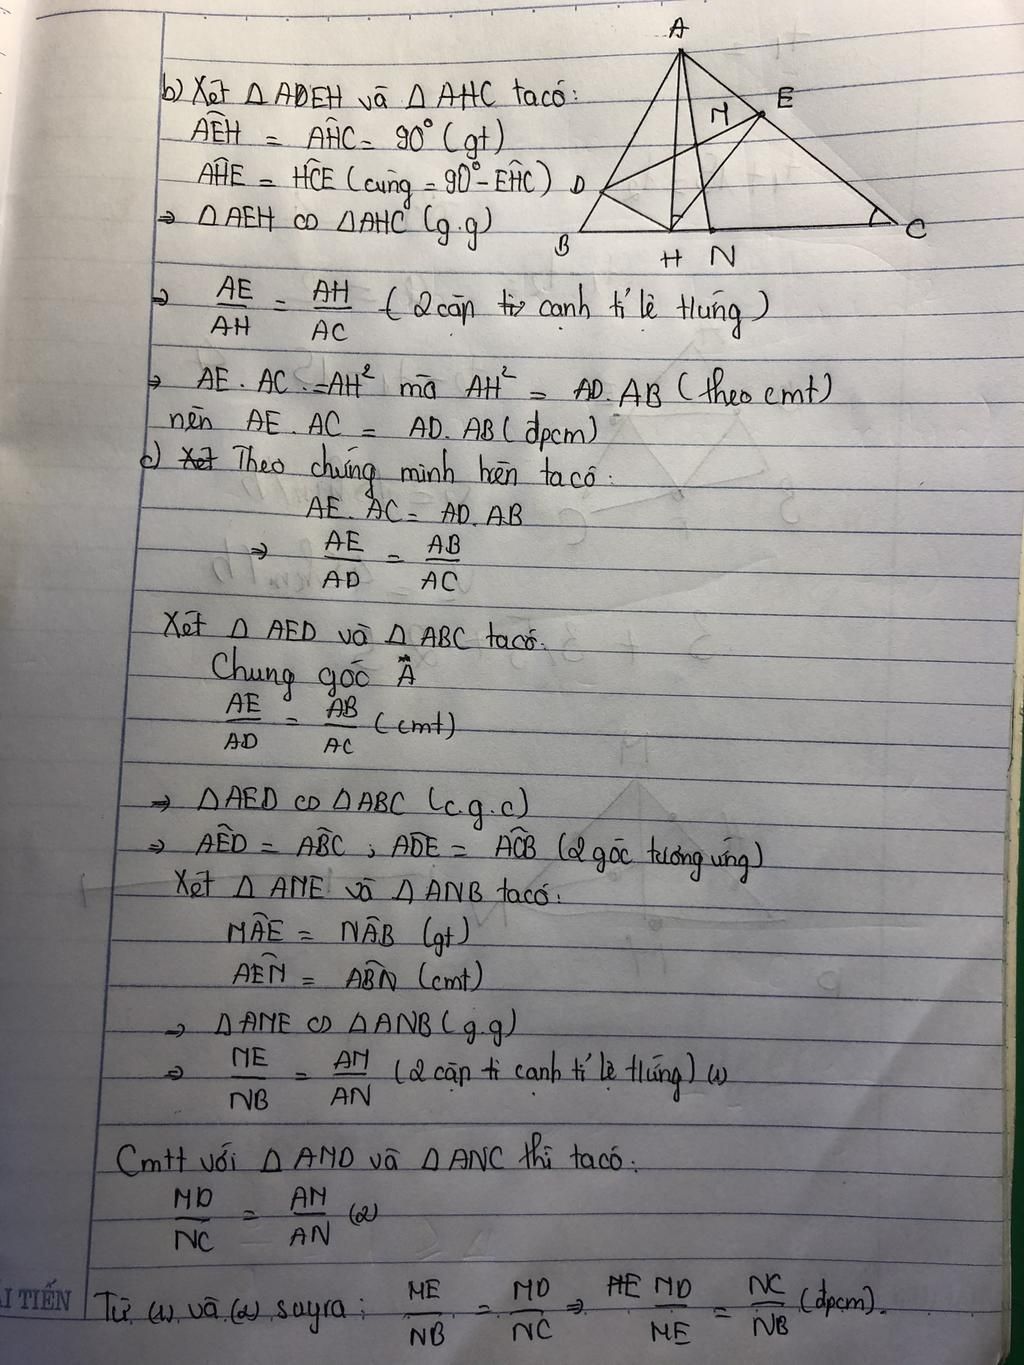 A
E
M
D
B
H N
C
b) Xét △ADEH và △AHC ta có:
AÊH = AĤC = 90° (gt)
AĤE = HĈE (cùng = 90° - EĤC)
⇒ △AEH ∽ △AHC (g.g)
⇒ AE/AH = AH/AC (2 cặp tỉ cạnh tỉ lệ t/ứng)
⇒ AE.AC = AH² mà AH² = AD.AB (theo cmt)
nên AE.AC = AD.AB (đpcm)
c) Xét Theo chứng minh trên ta có:
AE.AC = AD.AB
⇒ AE/AD = AB/AC
Xét △AED và △ABC ta có:
Chung góc Â
AE/AD = AB/AC (cmt)
⇒ △AED ∽ △ABC (c.g.c)
⇒ AÊD = AB̂C ; AD̂E = AĈB (2 góc tương ứng)
Xét △AME và △ANB ta có:
MÂE = NÂB (gt)
AEM̂ = AB̂N (cmt)
⇒ △AME ∽ △ANB (g.g)
⇒ ME/NB = AM/AN (2 cặp tỉ cạnh tỉ lệ t/ứng) (1)
Cmtt với △AMD và △ANC thì ta có:
MD/NC = AM/AN (2)
Từ (1) và (2) suy ra: ME/NB = MD/NC ⇒ ME MD/ME = NC/NB (đpcm).
ẢI TIẾN